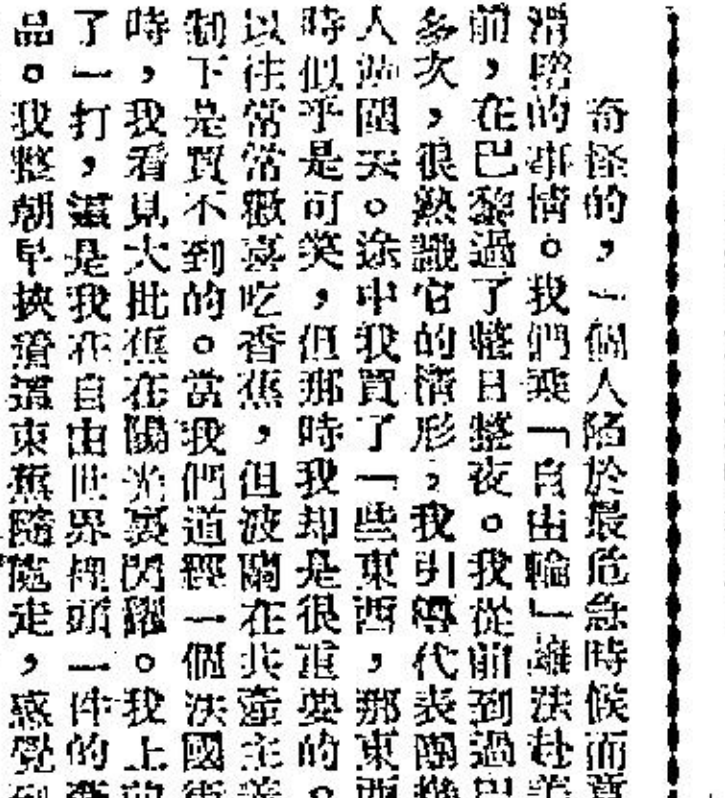 奇怪的，一個人陷於最危急時候而
滑稽的事情。我們乘「自由輪」離法赴美
前，在巴黎過了整日整夜。我從前到過巴
多次，很熟識它的情形；我引導代表團幾
人遊圈天。途中我買了一些東西，那東西
時似乎是可笑，但那時我却是很重要的。
以往常常歡喜吃香蕉，但波蘭在共產主義
制下是買不到的。當我們道經一個法國
時，我看見大批蕉在陽光裏閃耀。我上前
了一打，這是我在自由世界裡頭一件的
品。我整朝早挾着這束蕉隨處走，感覺到